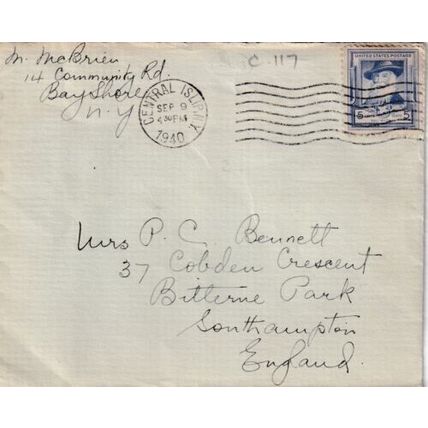 M. McBrien
14 Community Rd.
Bay Shore
N.Y
C.117
CENTRAL ISLIP, N.Y.
SEP 9
4 30 PM
1940
UNITED STATES POSTAGE
5 5
Mrs P. C. Bennett
37 Cobden Crescent
Bitterne Park
Southampton
England.